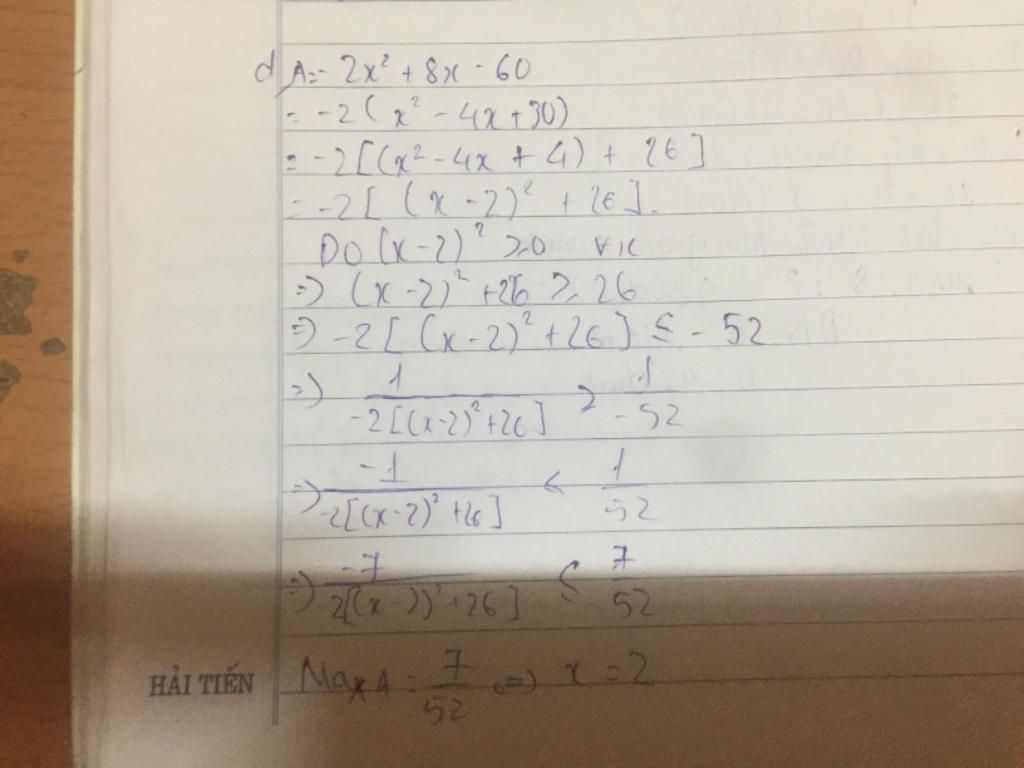 d, A = - 2x² + 8x - 60
= -2 ( x² - 4x + 30)
= -2[(x² - 4x + 4) + 26]
= -2[ (x - 2)² + 26].
Do (x - 2)² ≥ 0 ∀x
=> (x - 2)² + 26 ≥ 26
=> -2[ (x - 2)² + 26] ≤ - 52
=> 1 / -2[(x-2)²+26] ≥ 1 / -52
=> -1 / -2[(x-2)²+26] ≤ 1 / 52
=> -7 / -2[(x-2)²+26] ≤ 7 / 52
HẢI TIẾN
Max A = 7 / 52 <=> x = 2